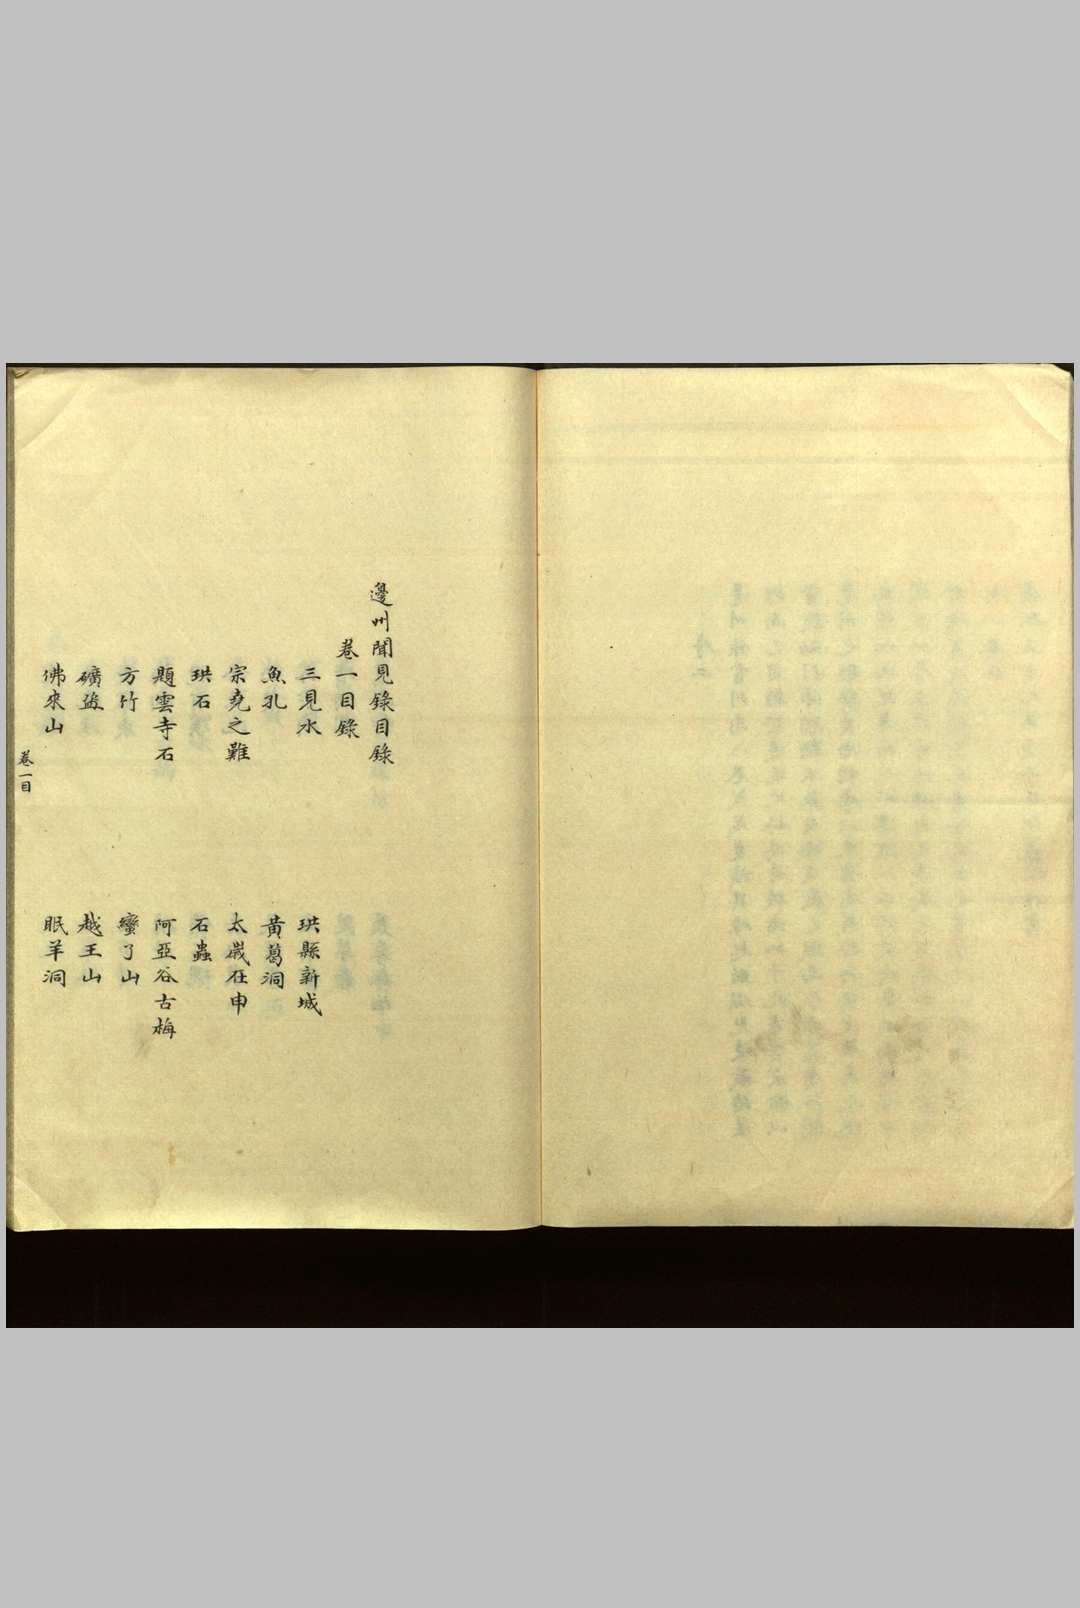 邊州聞見錄目錄
卷一目錄
三見水
珙縣新城
魚孔
黃葛洞
宗堯之難
太歲在申
珙石
石蟲
題雲寺石
阿亞谷古梅
方竹
蠻了山
礦盜
越王山
佛來山
眠羊洞
卷一目